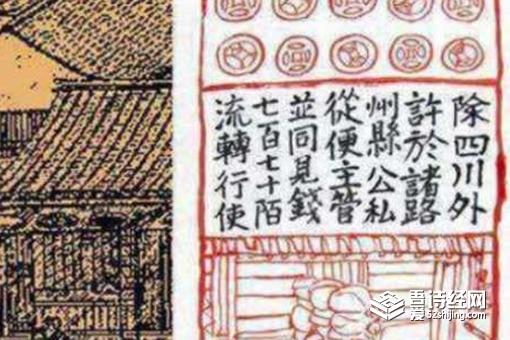 除四川外
許於諸路
州縣公私
從便主管
並同見錢
七百七十陌
流轉行使
吾诗经网
爱52shijing.com